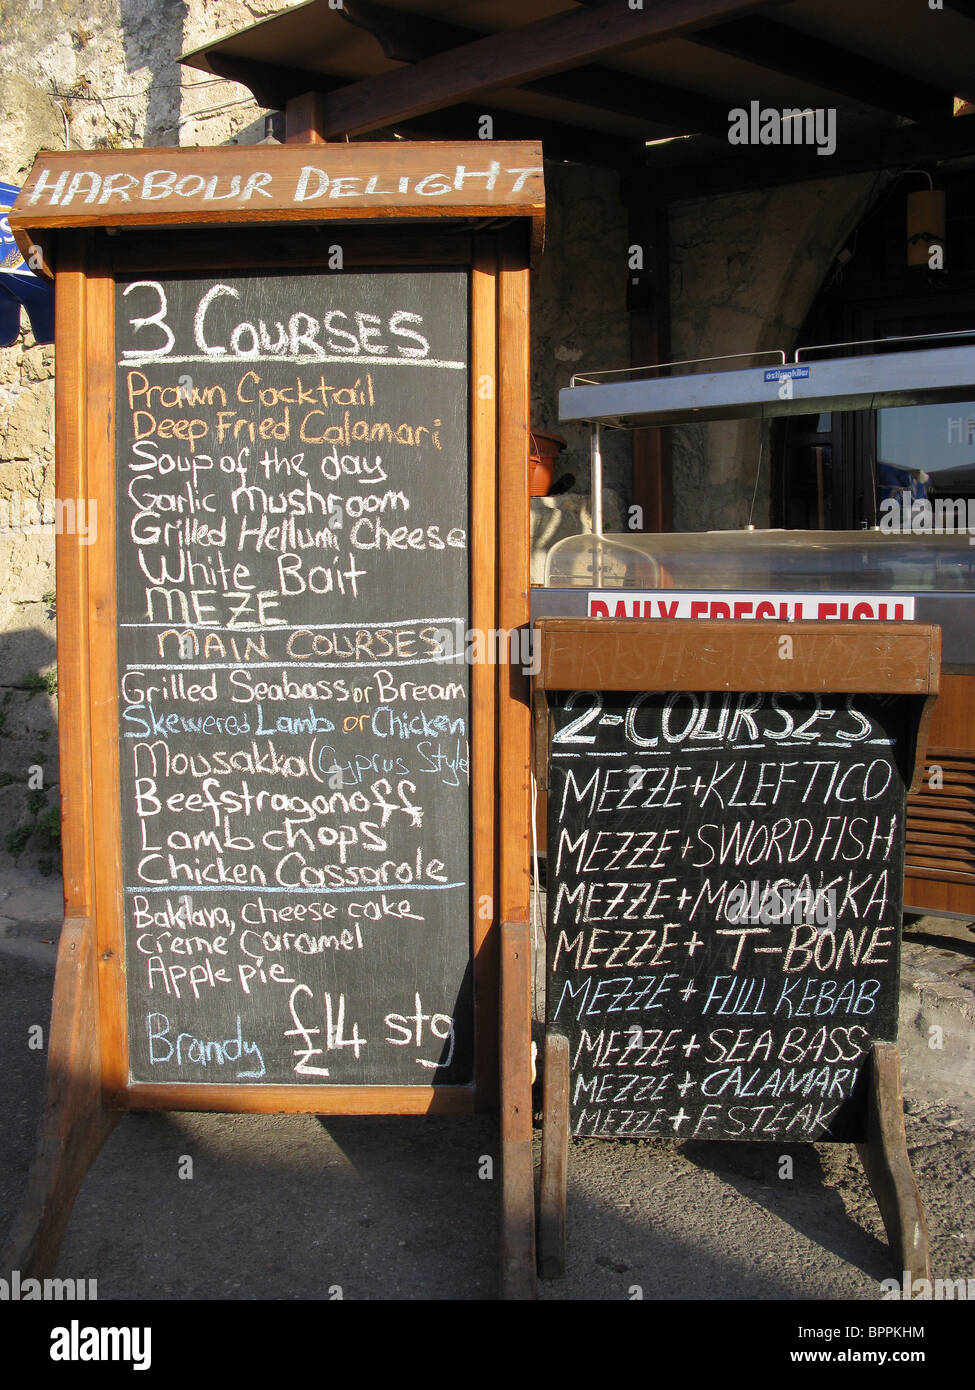 HARBOUR DELIGHT
3 COURSES
Prawn Cocktail
Deep Fried Calamari
Soup of the day
Garlic Mushroom
Grilled Hellumi Cheese
White Bait
MEZE
MAIN COURSES
Grilled Seabass or Bream
Skewered Lamb or Chicken
Mousakka (Cyprus Style
Beefstragonoff
Lamb chops
Chicken Cassarole
Baklava, cheese cake
creme Caramel
Apple pie
Brandy £14 stg
öztinyakılar
DAILY FRESH FISH
2-COURSES
MEZZE+KLEFTICO
MEZZE+SWORDFISH
MEZZE+MOUSAKKA
MEZZE+T-BONE
MEZZE+FULL KEBAB
MEZZE+SEABASS
MEZZE+CALAMARI
MEZZE+F.STEAK
alamy
Image ID: BPPKHM
www.alamy.com